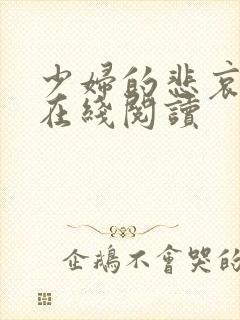 少婦的悲哀
在綫閱讀
企鵝不會哭的